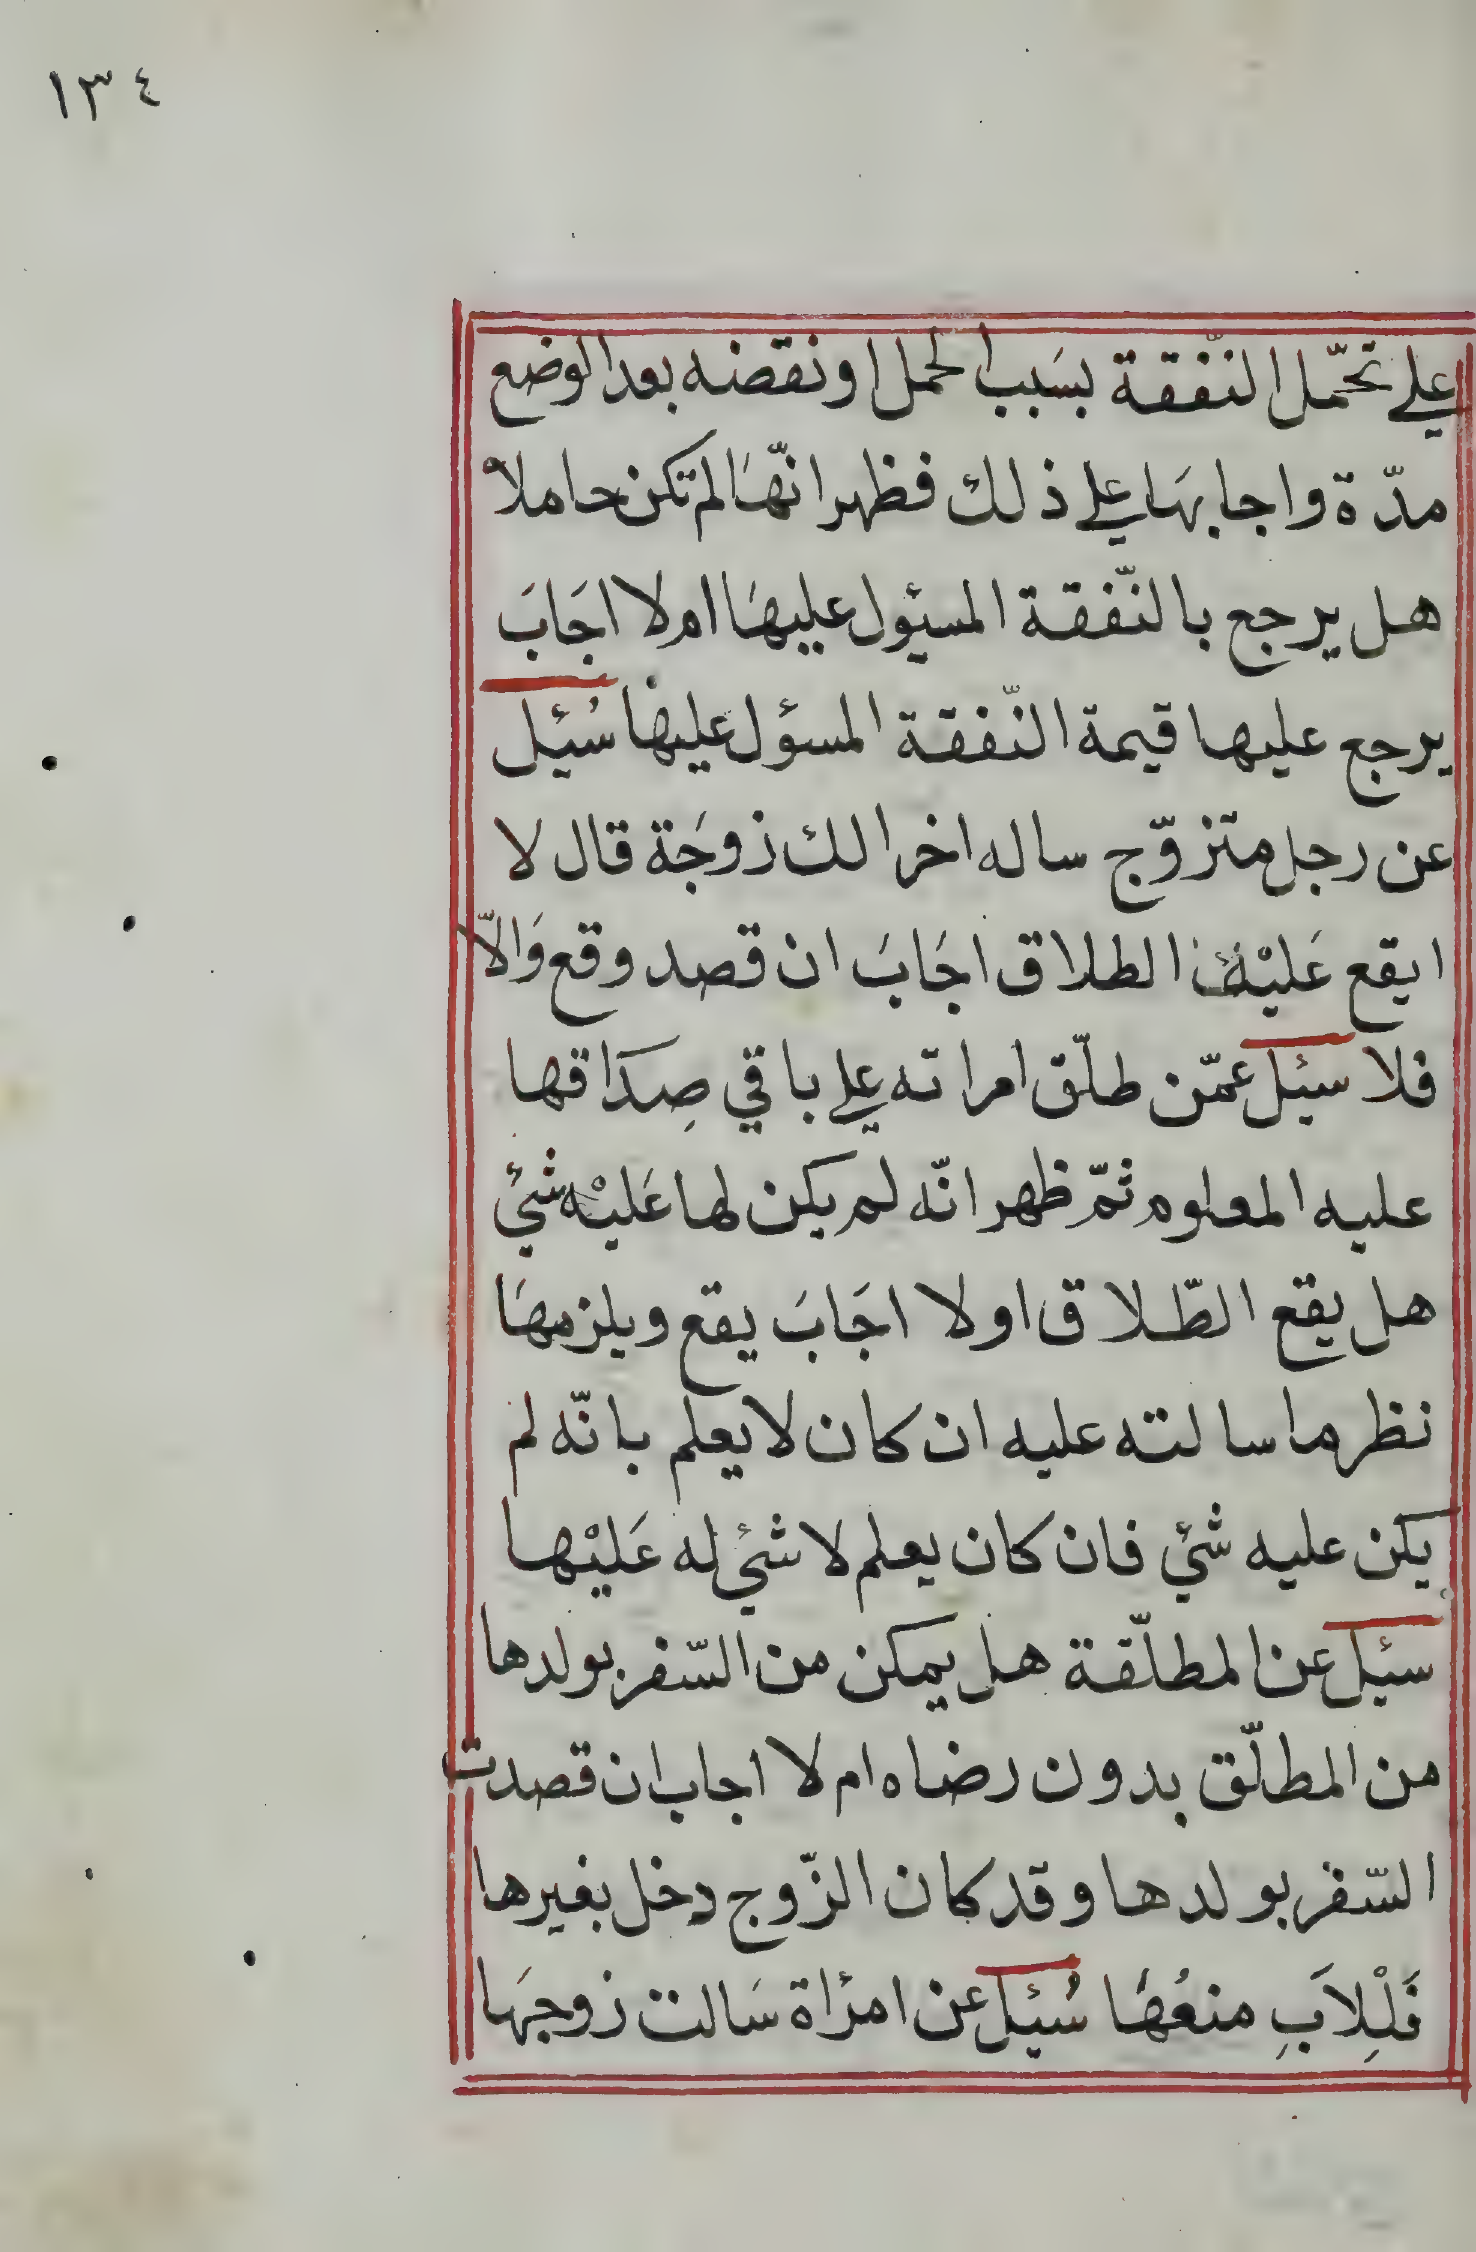 ١٣٤
علي تحّمل النّفقة بسَبب الحمل او نقضه بعد الوضع
مدّة واجابهَا علي ذلك فظهر انّهَا لم تكن حاملاً
هل يرجع بالنّفقة المسئول عليهَا ام لا اجَابَ
يرجع عليها قيمة النّفقة المسؤل عليها سُئِل
عن رجل متزوّج ساله اخر الك زوجَة قال لا
ايقع عَليْه الطلاق اجَابَ ان قصد وقع وَالاّ
فلا سئل عمّن طلّق امراته علي باقي صِدَاقها
عليه المعلوم ثمّ ظهر انّه لم يكن لها عَليْه شئ
هل يقع الطّلاق او لا اجَابَ يقع ويلزمهَا
نظر ما سالته عليه ان كان لا يعلم بانّه لم
يكن عليه شئ فان كان يعلم لا شئ له عَليْها
سئل عن المطلّقة هل يمكن من السّفر بولدها
من المطلّق بدون رضاه ام لا اجاب ان قصدت
السّفر بولدها وقد كان الزّوج دخل بغيرها
فَلْلِاَبِ منعُهَا سُئِل عن امرْاة سَالت زوجهَا